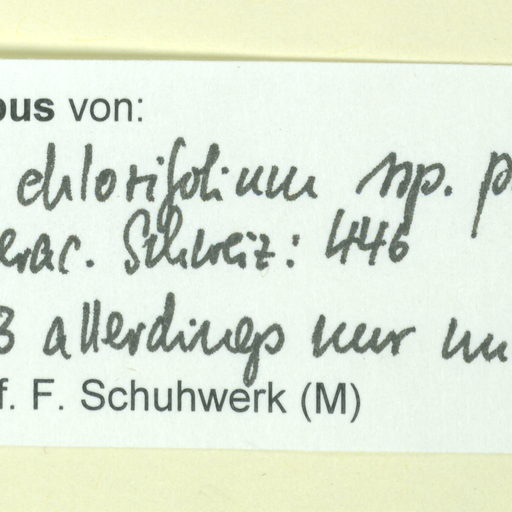 pus von:
chlorifolium ssp. p
erac. Schweiz: 446
3 allerdings nur
f. F. Schuhwerk (M)